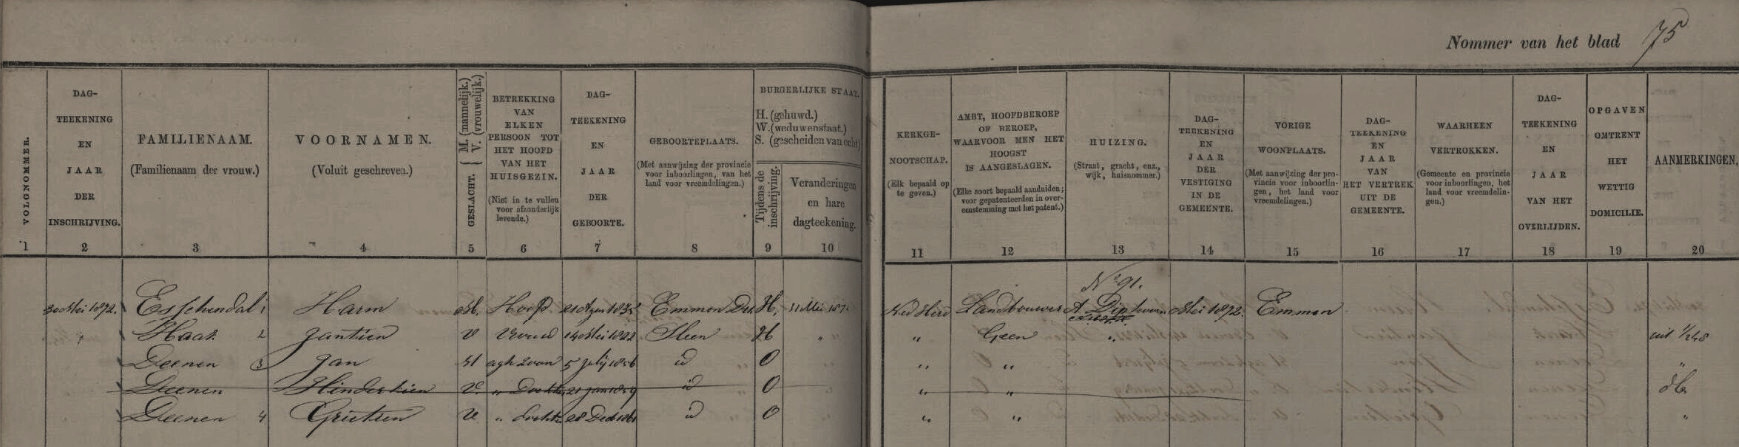 Nommer van het blad 75
VOLGNOMMER.
DAG-
TEEKENING
EN
JAAR
DER
INSCHRIJVING.
FAMILIENAAM.
(Familienaam der vrouw.)
VOORNAMEN.
(Voluit geschreven.)
GESLACHT. { M. (mannelijk.) V. (vrouwelijk.)
BETREKKING
VAN
ELKEN
PERSOON TOT
HET HOOFD
VAN HET
HUISGEZIN.
(Niet in te vullen
voor afzonderlijk
levende.)
DAG-
TEEKENING
EN
JAAR
DER
GEBOORTE.
GEBOORTEPLAATS.
(Met aanwijzing der provincie
voor inboorlingen, van het
land voor vreemdelingen.)
BURGERLIJKE STAAT.
H. (gehuwd.)
W. (weduwenstaat.)
S. (gescheiden van echt)
Tijdens de
inschrijving.
Veranderingen
en hare
dagteekening.
KERKGE-
NOOTSCHAP.
(Elk bepaald op
te geven.)
AMBT, HOOFDBEROEP
OF BEROEP,
WAARVOOR MEN HET
HOOGST
IS AANGESLAGEN.
(Elke soort bepaald aanduiden;
voor gepatenteerden in over-
eenstemming met het patent.)
HUIZING.
(Straat, gracht, enz.,
wijk, huisnommer.)
DAG-
TEEKENING
EN
JAAR
DER
VESTIGING
IN DE
GEMEENTE.
VORIGE
WOONPLAATS.
(Met aanwijzing der pro-
vincie voor inboorlin-
gen, het land voor
vreemdelingen.)
DAG-
TEEKENING
EN
JAAR
VAN
HET VERTREK
UIT DE
GEMEENTE.
WAARHEEN
VERTROKKEN.
(Gemeente en provincie
voor inboorlingen, het
land voor vreemdelin-
gen.)
DAG-
TEEKENING
EN
JAAR
VAN HET
OVERLIJDEN.
OPGAVEN
OMTRENT
HET
WETTIG
DOMICILIE.
AANMERKINGEN.
1 2 3 4 5 6 7 8 9 10 11 12 13 14 15 16 17 18 19 20
No 91.
Mei 1872. Esschendal 1 Harm M. Hoofd Emmen H. 11 Mei Ned Herv Landbouwer A Mei 1872 Emmen
" Haak 2 Jantien V Vrouw Sleen H " Geen "
Deenen 3 Jan M zoon 5 July 1856 id O " "
Deenen Hinderkien V. " Docht id O " "
Deenen 4 Grietien V " docht id O " "